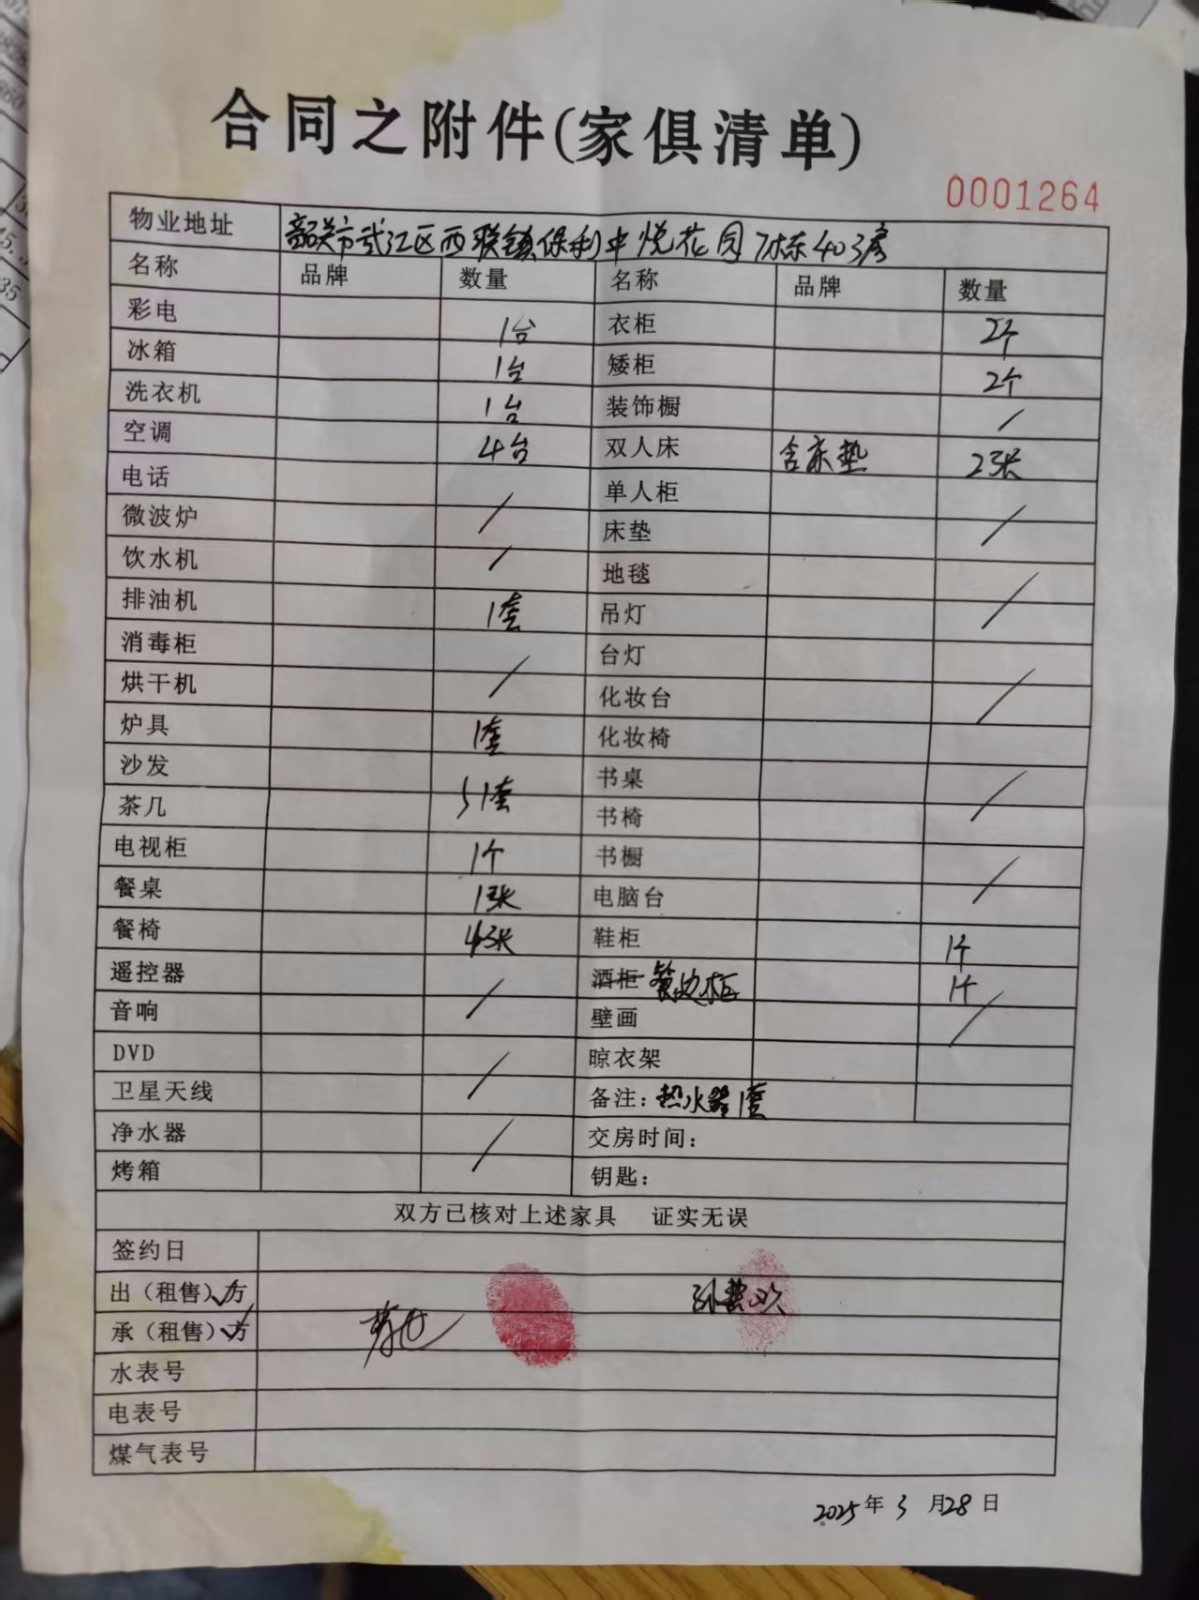 合同之附件(家俱清单)
0001264
物业地址 韶关市武江区西联镇保利中悦花园7栋403房
名称 品牌 数量 名称 品牌 数量
彩电 1台 衣柜 2个
冰箱 1台 矮柜 2个
洗衣机 1台 装饰橱 /
空调 4台 双人床 含床垫 2张
电话 单人柜
微波炉 / 床垫 /
饮水机 / 地毯
排油机 1套 吊灯 /
消毒柜 台灯
烘干机 / 化妆台 /
炉具 1套 化妆椅
沙发 书桌
茶几 1套 书椅 /
电视柜 1个 书橱
餐桌 1张 电脑台 /
餐椅 4张 鞋柜 1个
遥控器 酒柜 餐边柜 1个
音响 / 壁画 /
DVD 晾衣架
卫星天线 / 备注：热水器1套
净水器 交房时间：
烤箱 / 钥匙：
双方已核对上述家具 证实无误
签约日
出（租售）方
承（租售）方
水表号
电表号
煤气表号
2025年3月28日